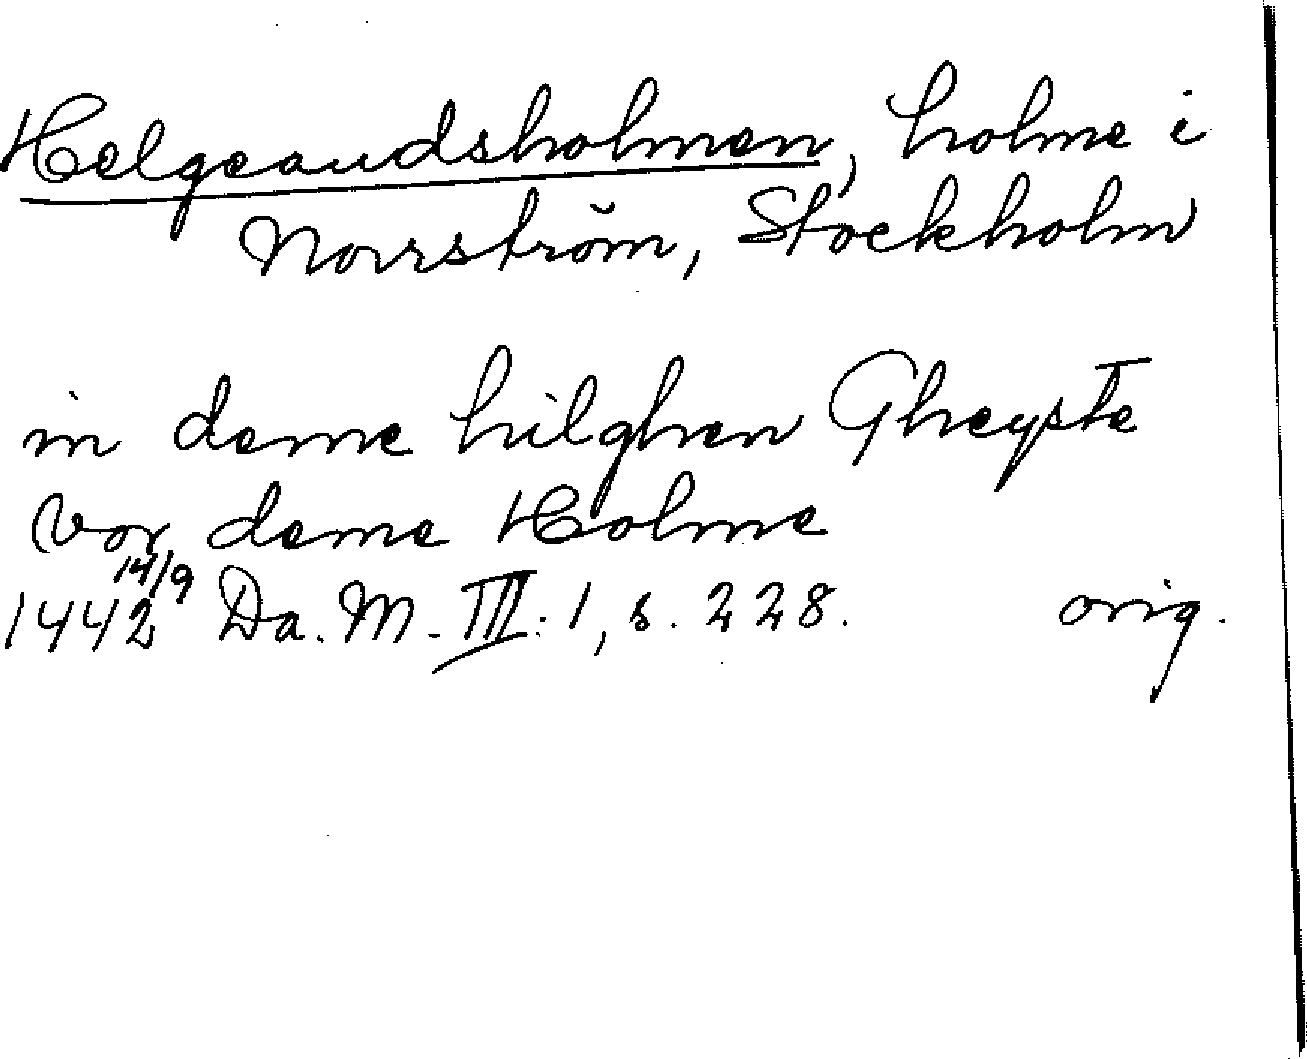 Helgeandsholmen, holme i
Norrström, Stockholm
in deme hilghen Gheyste
vor deme Holme
1442 14/9 Da. M. III: 1, s. 228. orig.